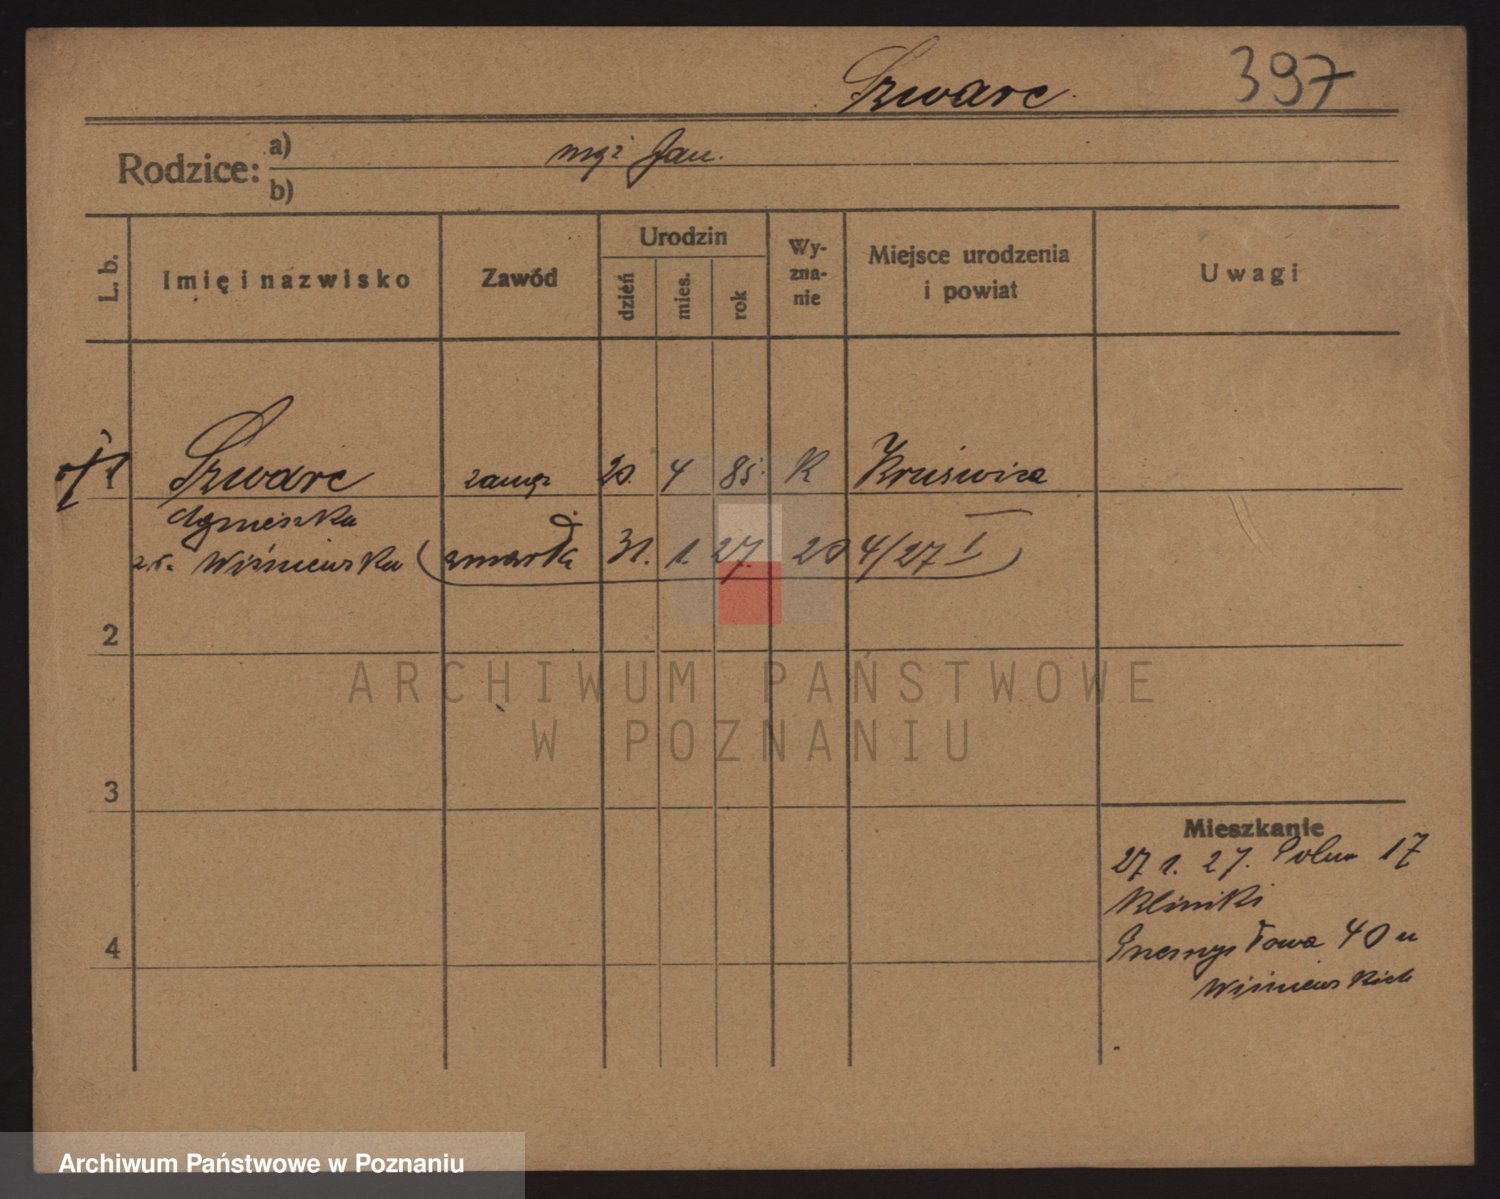 Szwarc.
397
Rodzice: a) mąż Jan.
b)
L. b.
Imię i nazwisko
Zawód
Urodzin
dzień
mies.
rok
Wy-
zna-
nie
Miejsce urodzenia
i powiat
Uwagi
1 Szwarc zamęż 20. 4 85. K Kruświca
Agnieszka
z.d. Wiśniewska (zmarła 31. 1. 27. 20 4/27 I)
2
3
4
ARCHIWUM PAŃSTWOWE
W POZNANIU
Mieszkanie
27 1. 27. Polna 17
Kliniki
Przemysłowa 40 u
Wiśniewskich
Archiwum Państwowe w Poznaniu